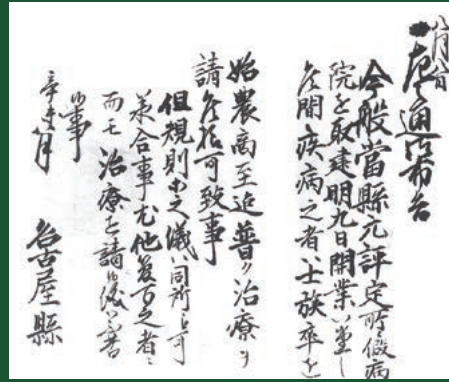 八月八日
一左之通御布告
今般當縣元評定所ヘ假病
院を取建明九日開業いたし
候間疾病之者ハ士族卒を
始農商至迄普ク治療ヲ
請候様可致事
但規則等之儀ハ同所ニ而可
承合事尤他管下之者ニ
而モ治療を請候儀不苦
候事
辛未八月
名古屋縣